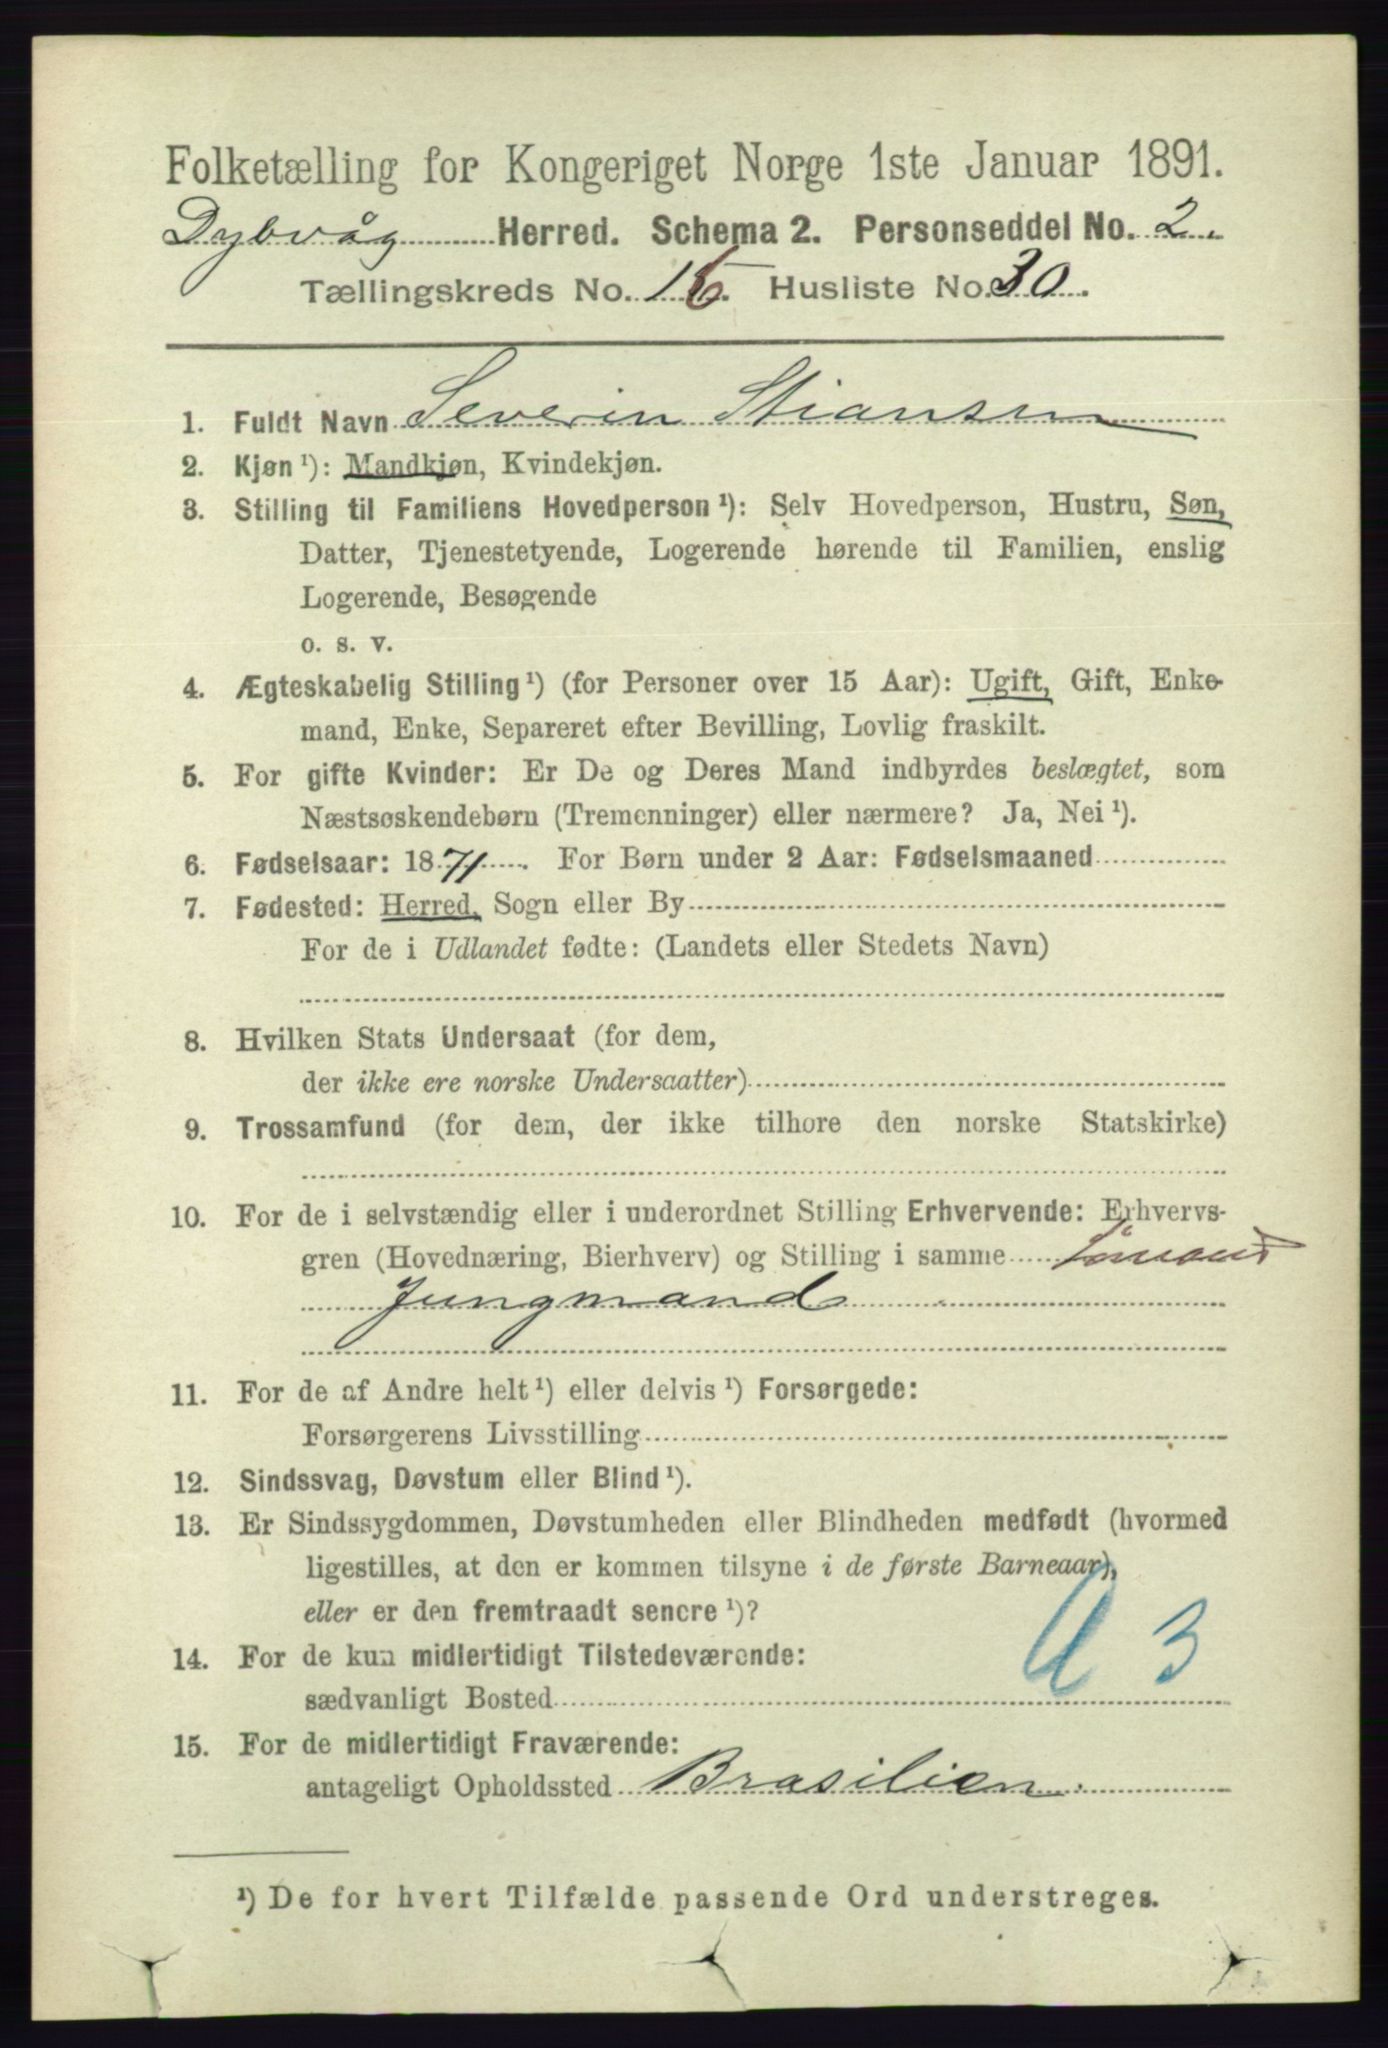 Folketælling for Kongeriget Norge 1ste Januar 1891.
Dybvåg Herred. Schema 2. Personseddel No. 2.
Tællingskreds No. 16. Husliste No. 30.
1. Fuldt Navn Severin Stiansen
2. Kjøn ¹): Mandkjøn, Kvindekjøn.
3. Stilling til Familiens Hovedperson ¹): Selv Hovedperson, Hustru, Søn,
Datter, Tjenestetyende, Logerende hørende til Familien, enslig
Logerende, Besøgende
o. s. v.
4. Ægteskabelig Stilling ¹) (for Personer over 15 Aar): Ugift, Gift, Enke-
mand, Enke, Separeret efter Bevilling, Lovlig fraskilt.
5. For gifte Kvinder: Er De og Deres Mand indbyrdes beslægtet, som
Næstsøskendebørn (Tremenninger) eller nærmere? Ja, Nei ¹).
6. Fødselsaar: 1871. For Børn under 2 Aar: Fødselsmaaned
7. Fødested: Herred, Sogn eller By
For de i Udlandet fødte: (Landets eller Stedets Navn)
8. Hvilken Stats Undersaat (for dem,
der ikke ere norske Undersaatter)
9. Trossamfund (for dem, der ikke tilhøre den norske Statskirke)
10. For de i selvstændig eller i underordnet Stilling Erhvervende: Erhvervs-
gren (Hovednæring, Bierhverv) og Stilling i samme Sömand
Jungmand
11. For de af Andre helt ¹) eller delvis ¹) Forsørgede:
Forsørgerens Livsstilling
12. Sindssvag, Døvstum eller Blind ¹).
13. Er Sindssygdommen, Døvstumheden eller Blindheden medfødt (hvormed
ligestilles, at den er kommen tilsyne i de første Barneaar),
eller er den fremtraadt senere ¹)?
14. For de kun midlertidigt Tilstedeværende:
sædvanligt Bosted
15. For de midlertidigt Fraværende:
antageligt Opholdssted Brasilien.
¹) De for hvert Tilfælde passende Ord understreges.